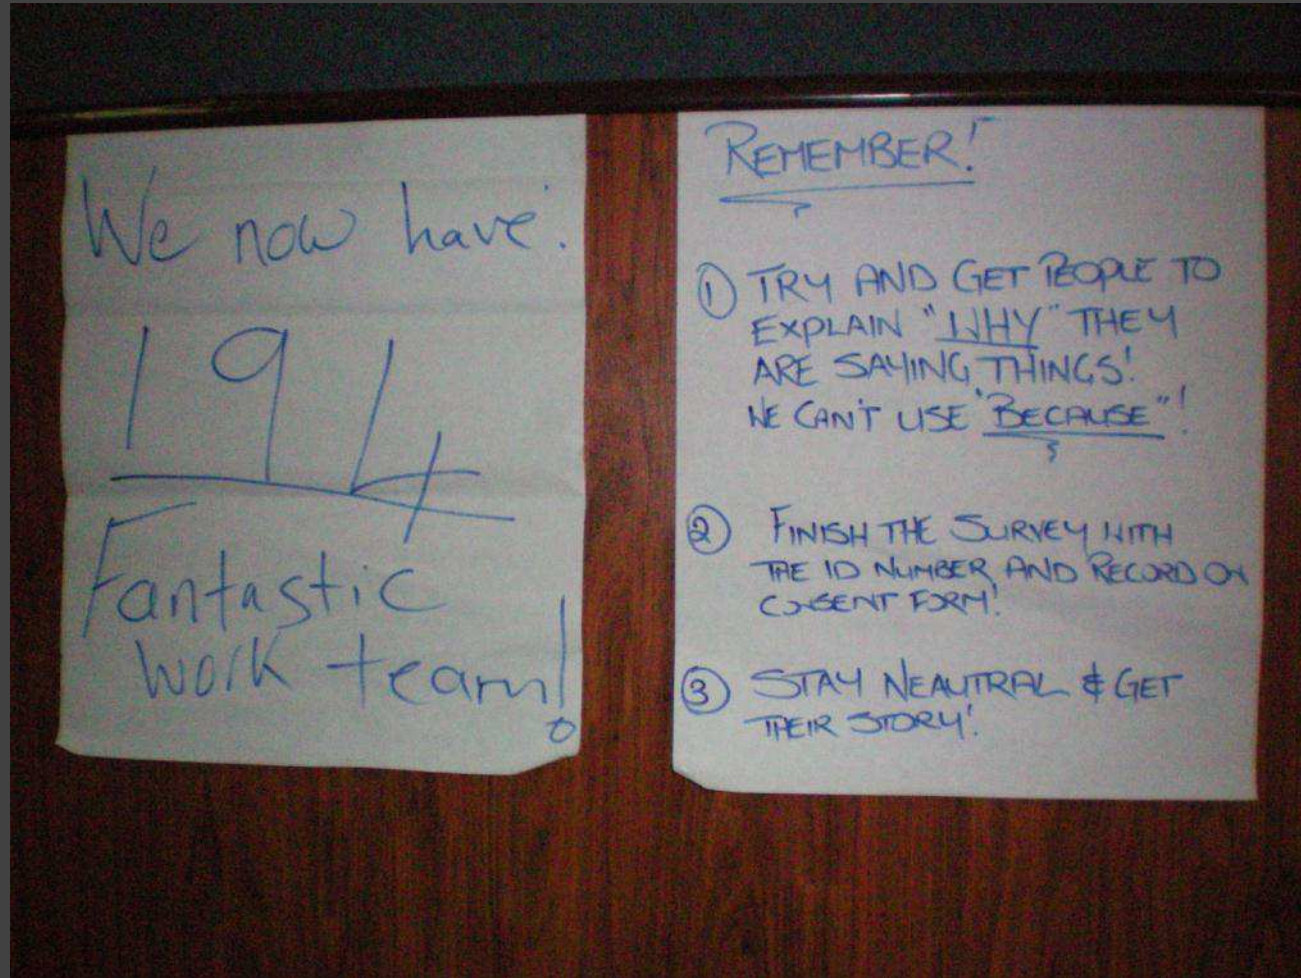 We now have:
194
Fantastic
work team!
REMEMBER!
① TRY AND GET PEOPLE TO
EXPLAIN "WHY" THEY
ARE SAYING THINGS!
WE CAN'T USE "BECAUSE"!
② FINISH THE SURVEY WITH
THE ID NUMBER AND RECORD ON
CONSENT FORM!
③ STAY NEAUTRAL & GET
THEIR STORY!